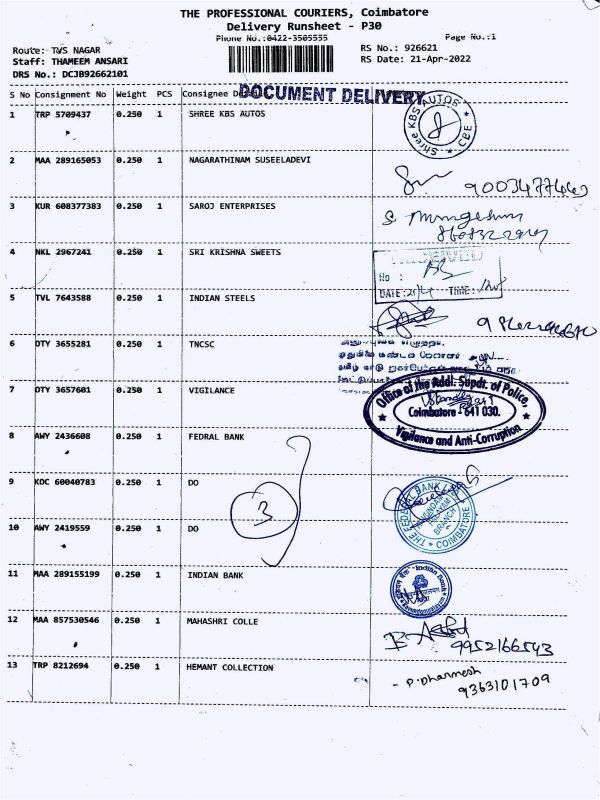 THE PROFESSIONAL COURIERS, Coimbatore
Delivery Runsheet - P30
Phone No.:0422-3505555
Page No.:1
Route: TVS NAGAR
RS No.: 926621
Staff: THAMEEM ANSARI
RS Date: 21-Apr-2022
DRS No.: DCJB92662101
S No Consignment No Weight PCS Consignee
DOCUMENT DELIVERY
1 TRP 5709437 0.250 1 SHREE KBS AUTOS
Shree KBS AUTOS * CBE *
2 MAA 289165053 0.250 1 NAGARATHINAM SUSEELADEVI
3 KUR 608377383 0.250 1 SAROJ ENTERPRISES
4 NKL 2967241 0.250 1 SRI KRISHNA SWEETS
No :
DATE: TIME:
5 TVL 7643588 0.250 1 INDIAN STEELS
6 OTY 3655281 0.250 1 TNCSC
7 OTY 3657601 0.250 1 VIGILANCE
Office of the Addl. Supdt. of Police,
Coimbatore - 641 030.
Vigilance and Anti-Corruption
8 AWY 2436608 0.250 1 FEDRAL BANK
9 KOC 60040783 0.250 1 DO
3
THE FEDERAL BANK
BRANCH
COIMBATORE
10 AWY 2419559 0.250 1 DO
11 MAA 289155199 0.250 1 INDIAN BANK
Indian Bank
12 MAA 857530546 0.250 1 MAHASHRI COLLE
9952166543
13 TRP 8212694 0.250 1 HEMANT COLLECTION
- P. Dharmesh
9363101709